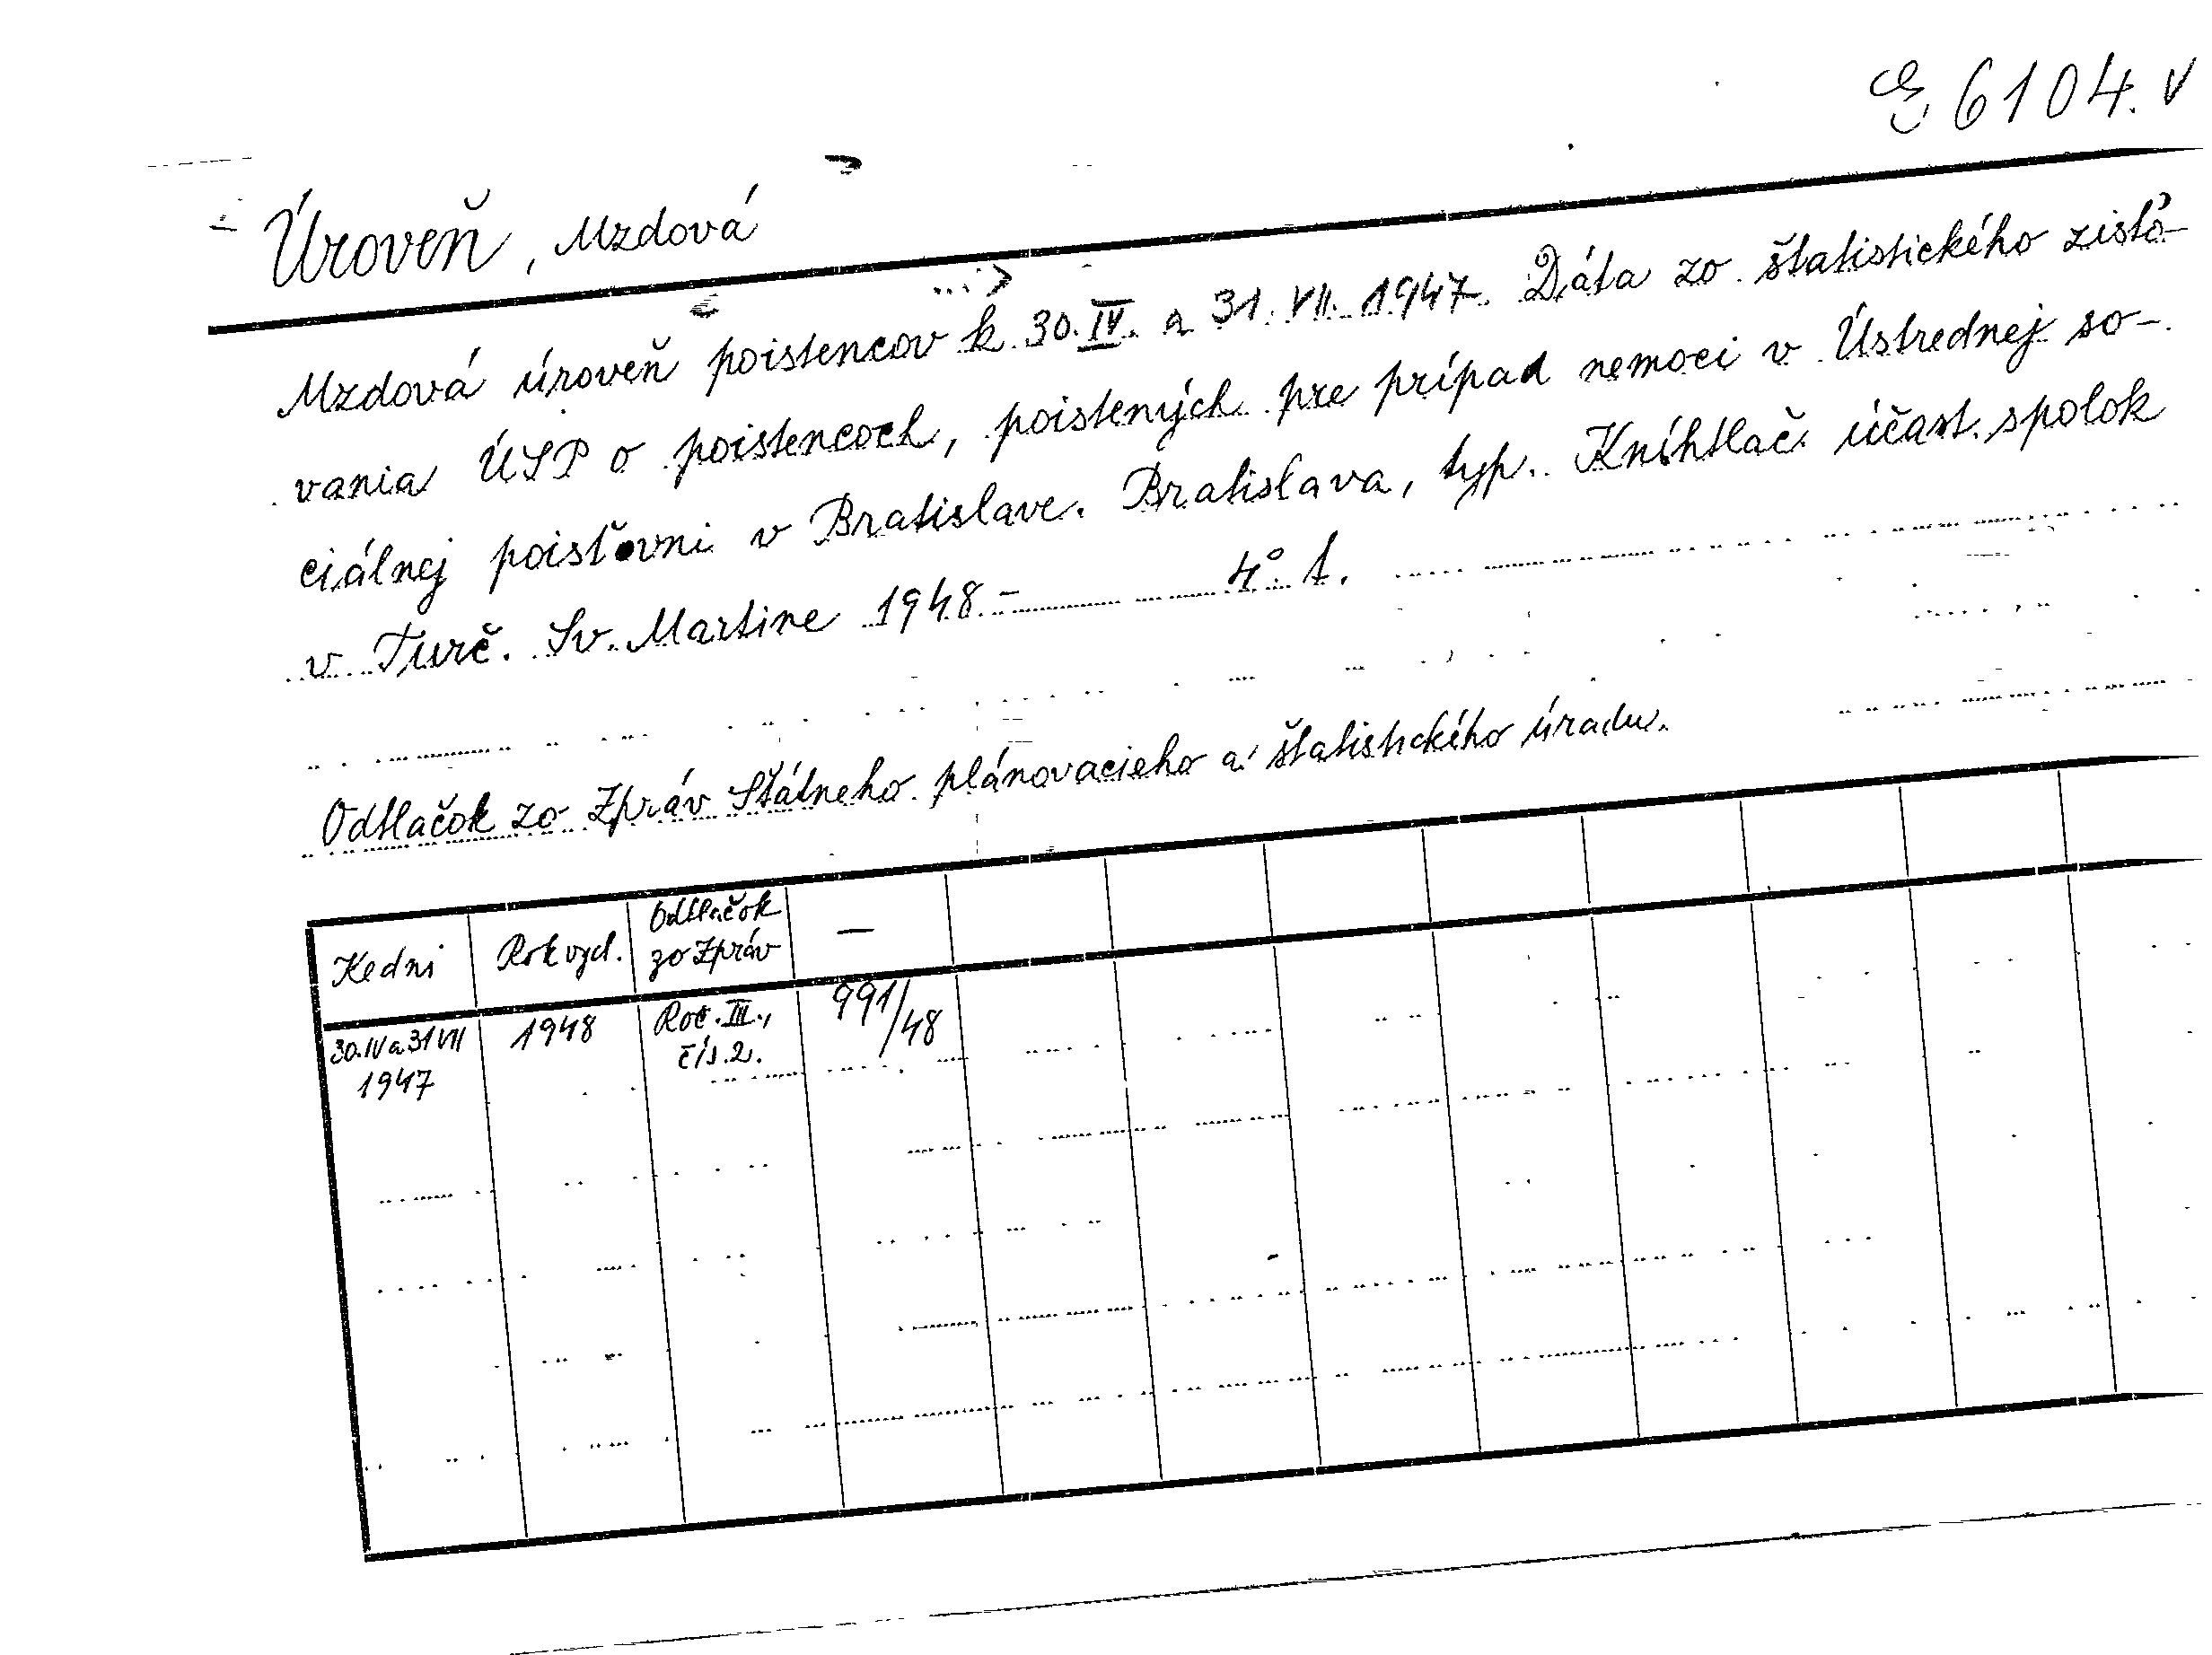 6104.
Úroveň, Mzdová
Mzdová úroveň poistencov k 30. IV. a 31. VII. 1947. Dáta zo štatistického zisťo-
vania ÚSP o poistencoch, poistených pre prípad nemoci v Ústrednej so-
ciálnej poisťovni v Bratislave. Bratislava, typ. Kníhtlač. účast. spolok
v Turč. Sv. Martine 1948.- 4°. t.
Odtlačok zo Zpráv Štátneho plánovacieho a štatistického úradu.
Kedni Rok vyd. Odtlačok —
zo Zpráv
30. IV a 31 VII 1948 Roč. III., 991/48
1947 čís. 2.